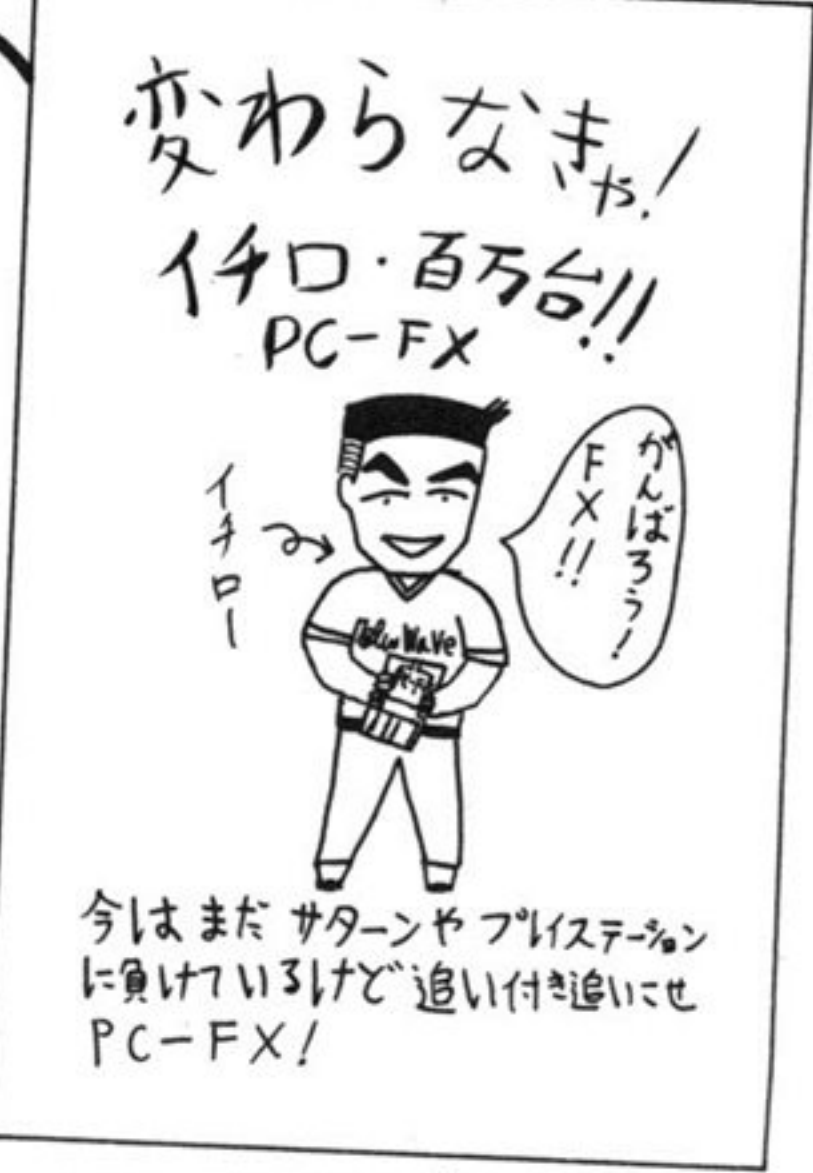 変わらなきゃ!
イチロ・百万台!!
PC-FX
イチロー
がんばろう!
FX!!
Blue Wave
今はまだサターンやプレイステーション
に負けているけど追い付き追いこせ
PC-FX!